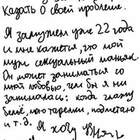 казать о своей проблеме.
Я замужем уже 22 года
и мне кажется, что мой
муж сексуальный маньяк.
Он может заниматься со
мной любовью, чем бы я ни
занималась: когда глажу
бельё, мою тарелки, подметаю
и т.д. Я хочу